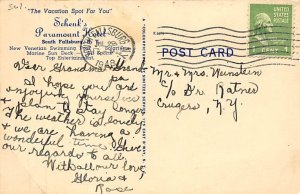 "The Vacation Spot For You"
Schenk's
Paramount Hotel
South Fallsburg
New Venetian Swimming Pool
Marine Sun Deck
Top Entertainment
POST CARD
Dear Grandma & Grandpa
I hope you are
enjoying yourselves
& plan to stay longer
The weather is lovely
& we are having a
wonderful time. Give
our regards to all.
With all our love
Gloria &
Rose
Mr & Mrs. Weinstein
c/o Dr. Ratner
Crugers, N.Y.